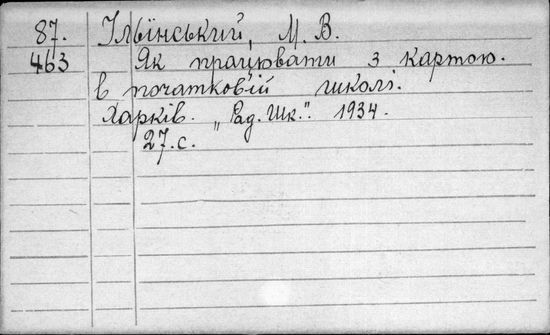 87. Ільїнський, М. В.
463 Як працювати з картою.
в початковій школі.
Харків. „Рад. Шк.". 1934.
27.с.